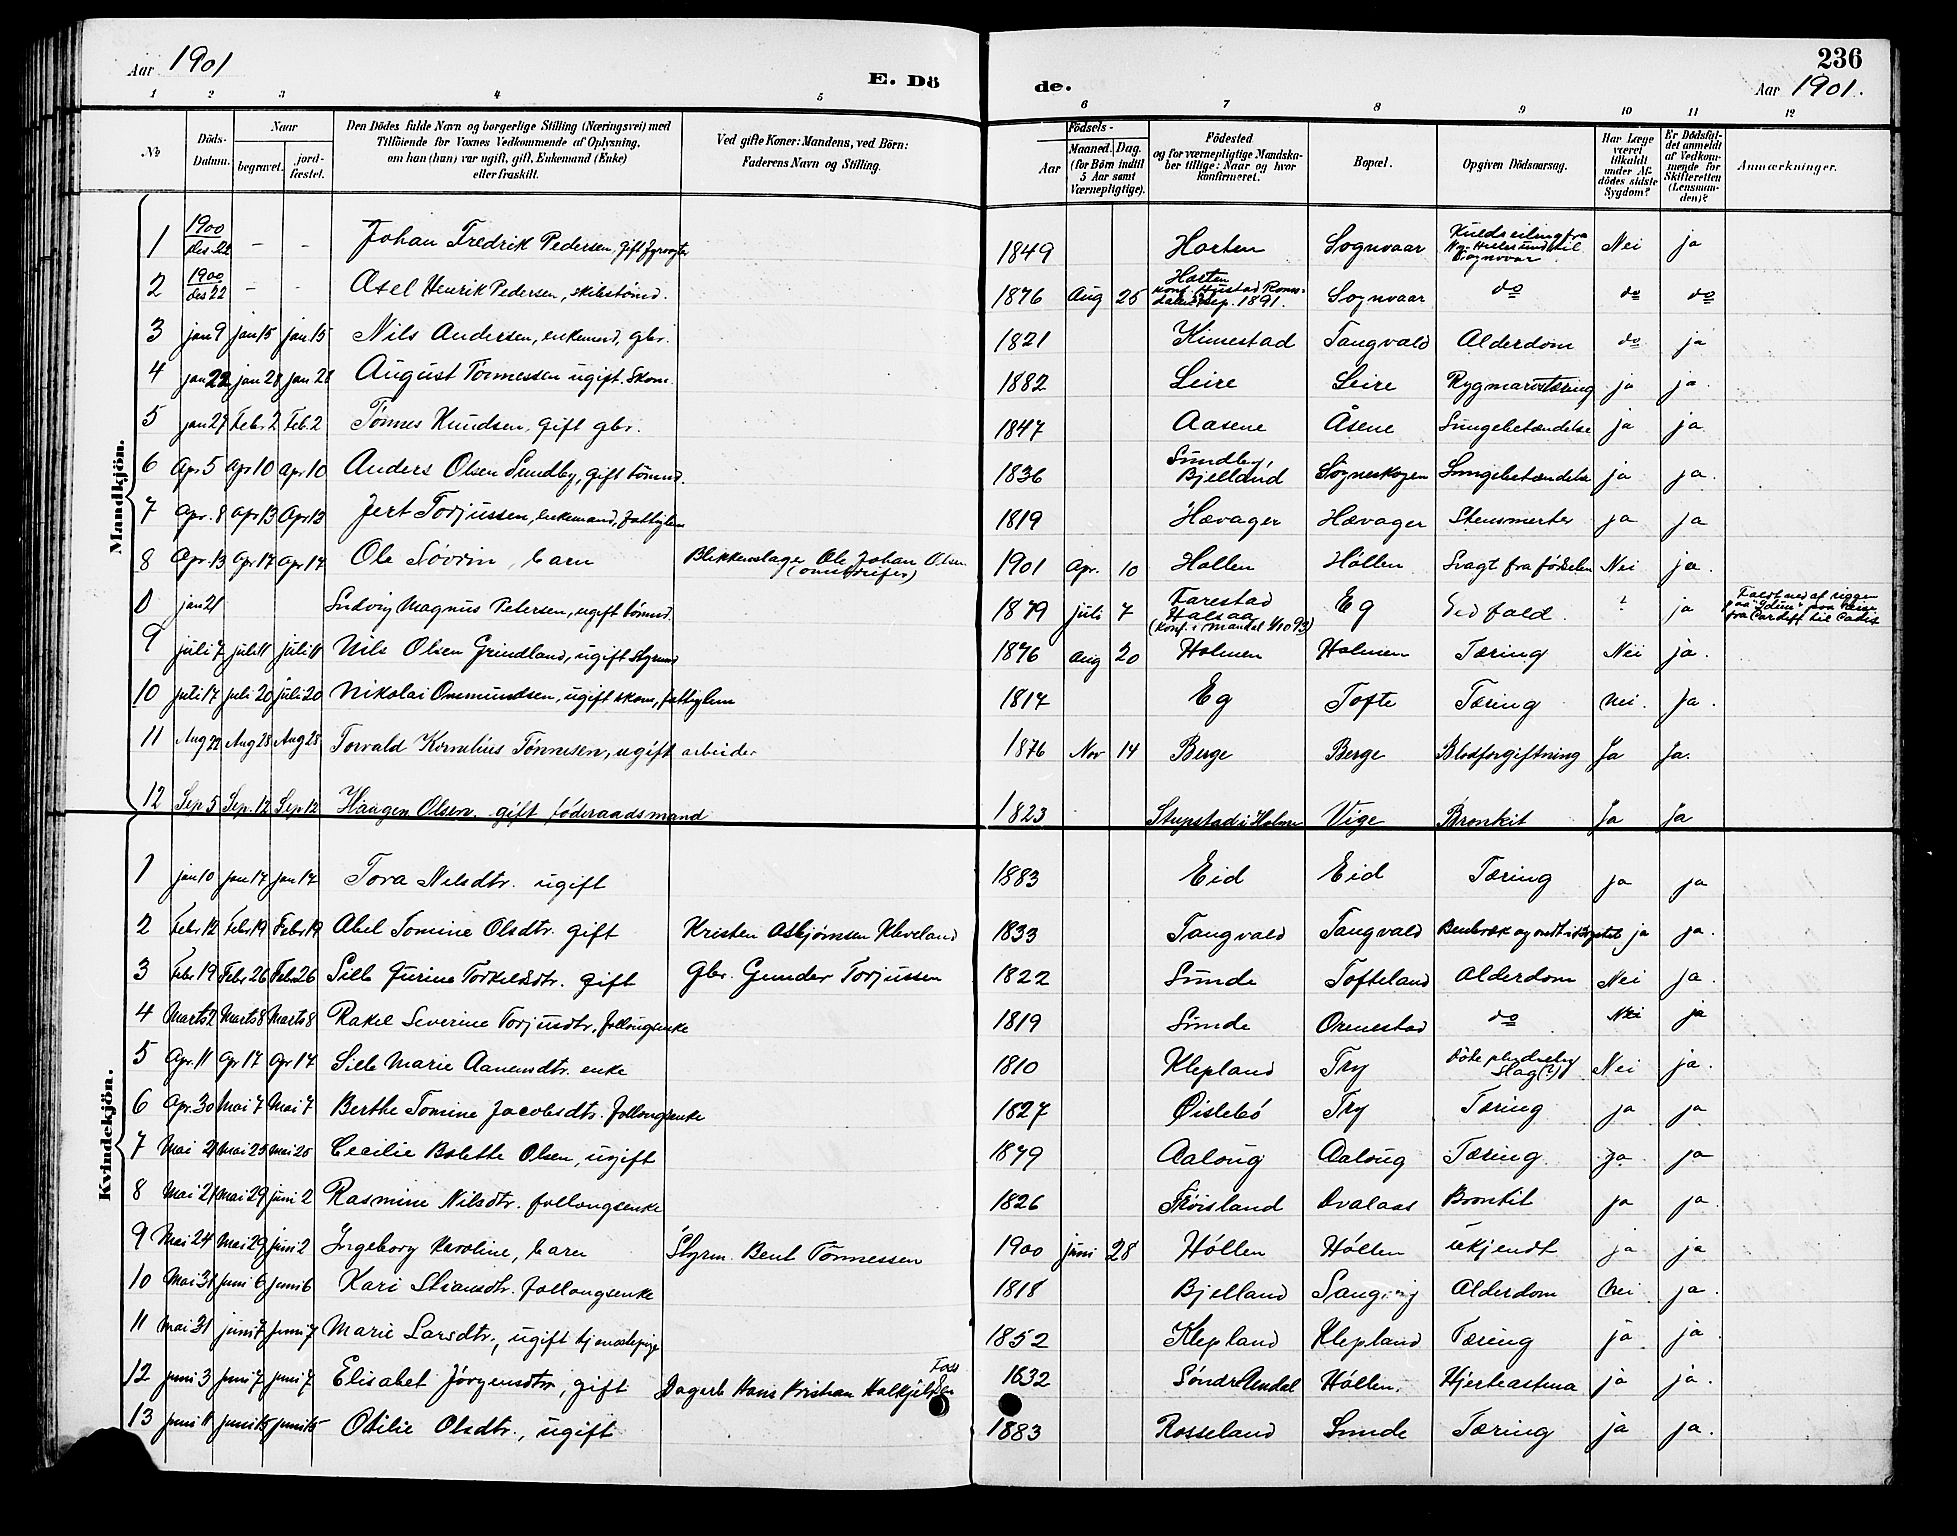 Aar 1901
E. Dö
de.
236
Aar 1901.
1 2 3 4 5 6 7 8 9 10 11 12
No
Döds-Datum.
Naar
begravet.
jord-fæstet.
Den Dödes fulde Navn og borgerlige Stilling (Næringsvei) med
Tilföiende for Voxnes Vedkommende af Oplysning,
om han (hun) var ugift, gift, Enkemand (Enke)
eller fraskilt.
Ved gifte Koner: Mandens, ved Börn:
Faderens Navn og Stilling.
Födsels-
Aar
Maaned. Dag.
(for Börn indtil
5 Aar samt
Værnepligtige).
Födested
og for værnepligtige Mandska-
ber tillige: Naar og hvor
konfirmeret.
Bopæl.
Opgiven Dödsaarsag.
Har Læge
været
tilkaldt
under Af-
dödes sidste
Sygdom?
Er Dödsfal-
det anmeldt
af Vedkom-
mende for
Skifteretten
(Lensman-
den)?
Anmærkninger.
Mandkjön.
1 1900 des 22 - - Johan Fredrik Pedersen, gift fyrvogter 1849 Horten Sognvaar Kuldseiling fra Ny-Hellesund til Sognvaar Nei ja
2 1900 des 22 - - Axel Henrik Pedersen, skibstømd. 1876 Aug 25 Horten konf. Hustad Roms-dalen sep. 1891. Sognvaar do do do
3 jan 9 jan 15 jan 15 Nils Andersen, enkemd, gbr. 1821 Kimestad Tangvald Alderdom do ja
4 jan 22 jan 28 jan 28 August Tønnessen ugift skom. 1882 Leire Leire Rygmarvstæring ja ja.
5 jan 27 Febr. 2 Feb. 2 Tønnes Knudsen, gift gbr. 1847 Aasene Åsene Lungebetændelse ja ja.
6 Apr 5 Apr 10 Apr 10 Anders Olsen Sundby, gift tømmd. 1836 Sundby, Bjelland Søgneskogen Lungebetændelse ja ja.
7 Apr. 8 Apr 13 Apr 13 Jert Torjussen, enkemand, fattiglem 1819 Hævager Hævager Stensmerter ja ja
8 Apr 13 Apr 17 Apr 17 Ole Søvrin, barn Blikkenslager Ole Johan Olsen (omstreifer) 1901 Apr. 10 Hollen Höllen Svagt fra fødselen Nei ja.
0 jan 21 Ludvig Magnus Petersen, ugift tømmd. 1879 juli 7 Farestad Halsaa (konf. i Mandal 4/10 93) Eg Ved fald. ? ja Faldt ned af riggen paa "Idun" paa reise fra Cardiff til Cadix
9 juli 7 juli 11 juli 11 Nils Olsen Grindland, ugift styrmd 1876 Aug 20 Holmen Holmen Tæring Nei ja.
10 juli 17 juli 20 juli 20 Nikolai Omundsen, ugift skom, fattiglem 1817 Eg Tofte Tæring Nei. Ja.
11 Aug 22 Aug 28 Aug 28 Torvald Kornelius Tønnesen, ugift arbeider 1876 Nov 14 Berge Berge Blodforgiftning Ja Ja.
12 Sep 5 Sep. 12 Sep 12 Haagen Olsen, gift føderaadsmand 1823 Stupstad i Holme Vige Bronkit Ja Ja
Kvindekjön.
1 jan 10 jan 17 jan 17 Tora Nilsdtr. ugift 1883 Eid Eid Tæring ja ja
2 Febr 12 Febr 19 Febr 19 Abel Tomine Olsdtr. gift Kristen Asbjørnsen Kleveland 1833 Tangvald Tangvald Benbræk og ondt i brystet ja ja.
3 Febr 19 Febr 26 Febr 26 Sille Gurine Torkelsdtr. gift Gbr. Gunder Torjussen 1822 Sunde Tofteland Alderdom Nei ja.
4 Marts 2 Marts 8 Marts 8 Rakel Severine Torjusdtr, follougsenke 1819 Sunde Orenestad do Nei ja
5 Apr. 11 Apr 17 Apr 17 Sille Marie Aanensdtr. enke 1810 Klepland Try Døde pludselig Slag (?) Nei ja.
6 Apr. 30 Mai 7 Mai 7 Berthe Tomine Jacobsdtr. follougsenke 1827 Øislebö Try Tæring ja ja
7 Mai 21 Mai 25 Mai 25 Cecilie Bolette Olsen, ugift 1879 Aaloug Aaloug Tæring. ja ja
8 Mai 21 Mai 29 juni 2 Rasmine Nilsdtr. follougsenke 1826 Frøisland Ovalaas Bronkit ja ja.
9 Mai 24 Mai 29 juni 2 Ingeborg Karoline, barn Styrm. Bent Tønnessen 1900 juni 28 Höllen Höllen ukjendt ja ja
10 Mai 31 juni 6 juni 6 Kari Stiansdtr. follougsenke 1818 Bjelland Alderdom Nei ja.
11 Mai 31 juni 7 juni 7 Marie Larsdtr., ugift tjenestepige 1852 Klepland Klepland Tæring ja. ja
12 juni 3 juni 7 juni 7 Elisabet Jørgensdtr, gift Dagarb. Hans Kristian Halkjelsen Foss 1832 Söndre Undal Höllen. Hjerteastma ja ja.
13 juni 11 juni 15 juni 15 Otilie Olsdtr., ugift 1883 Rosseland Sunde Tæring ja ja.